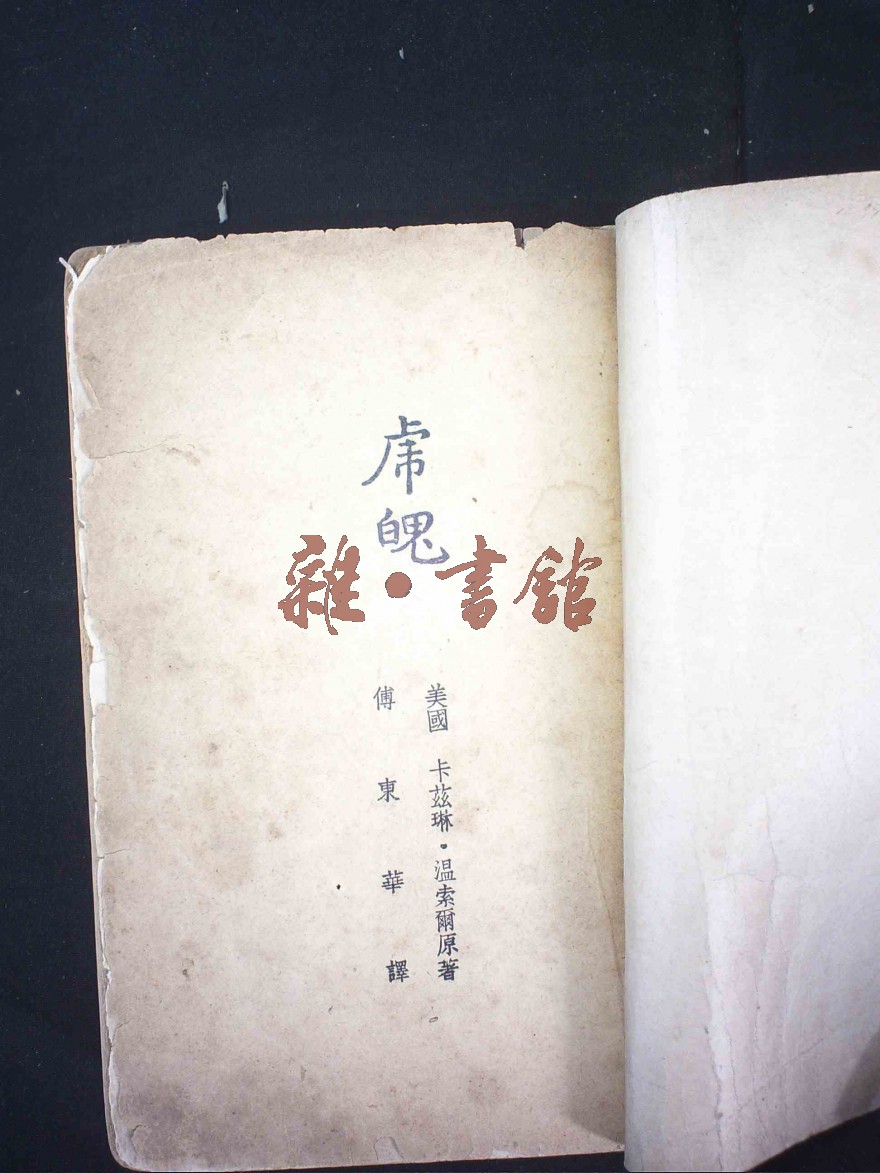 虎魄
雜·書館
美國 卡茲琳·温索爾原著
傅東華譯